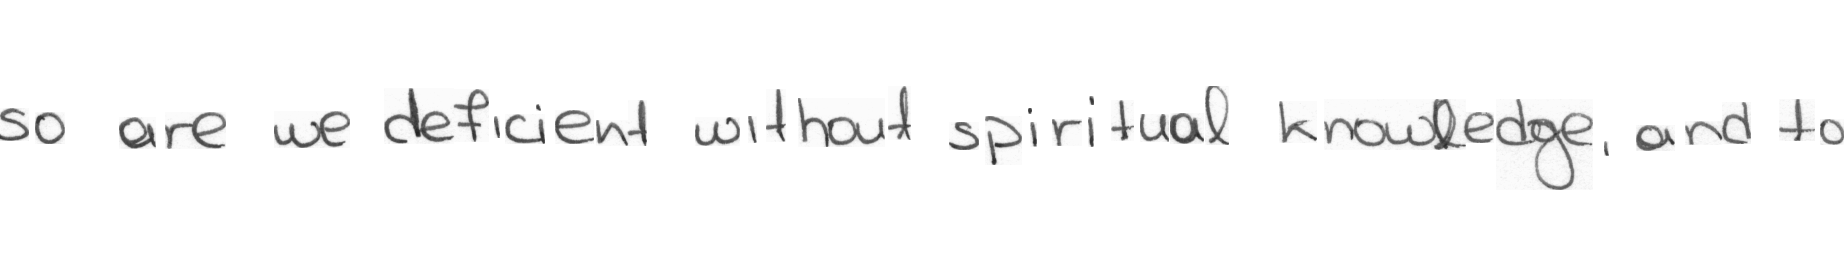 so are we deficient without spiritual knowledge, and to